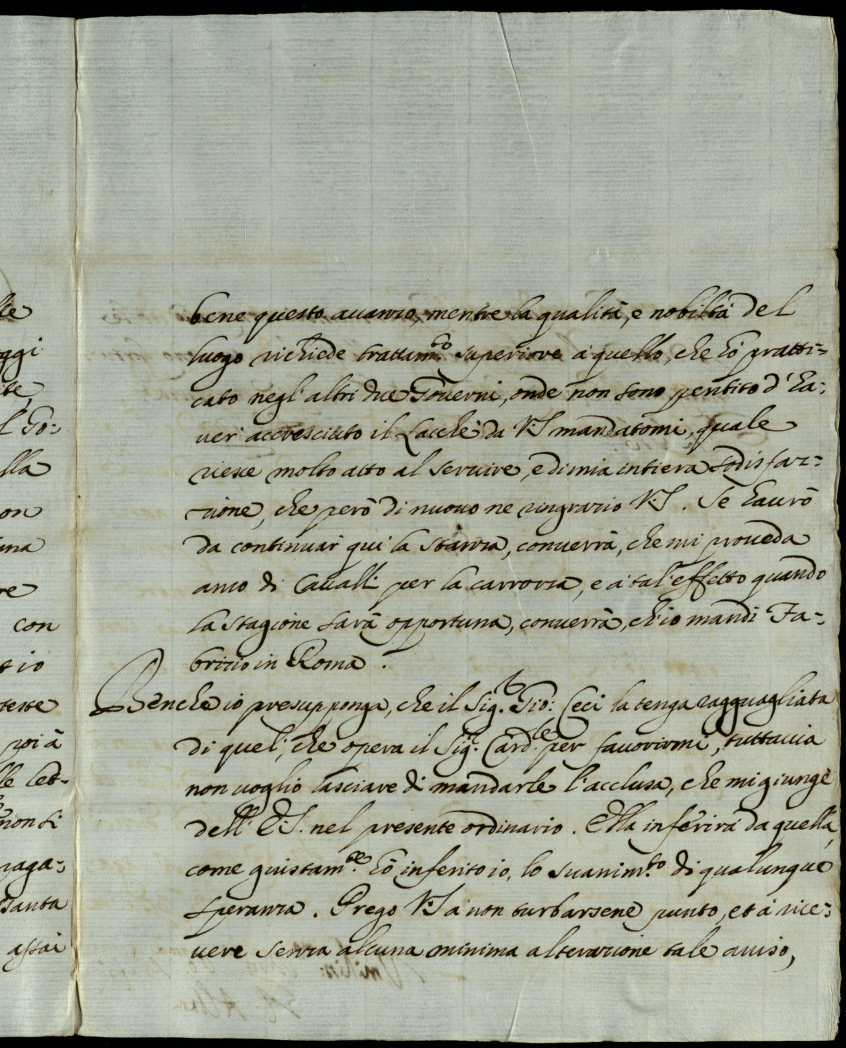 lle
bene questo auanzo, mentre la qualità, e nobiltà del
oggi
luogo richiede trattam.to superiore a quello, che hò pratti=
cato negl'altri due Gouerni, onde non sono pentito d'ha:
l Go:
uer' accresciuto il Lacchè da VS mandatomi, quale
lla
riesce molto atto al seruire, e di mia intiera sodisfaz:
on
zione, che però di nuouo ne ringrazio VS. Se haurò
una
da continuar qui la stanza, conuerrà, che mi proueda
re
anco di Caualli per la carrozza, e a tal'effetto quando
con
la stagione sarà opportuna, conuerrà, ch'io mandi Fa:
brizio in Roma.
Benche io presupponga, che il Sig.r Gio: Ceci la tenga ragguagliata
poi à
di quel, che opera il Sig.r Card.le per fauorirmi, tuttauia
lle let-
non uoglio lasciare di mandarle l'acclusa, che mi giunge
non si
dell' E.S. nel presente ordinario. Ella inferirà da quella,
raga:
come giustam.te hò inferito io, lo suanim.to di qualunque
Santa
speranza. Prego VS a non turbarsene punto, et à rice:
assai
uere senza alcuna minima alterazione tale auiso,